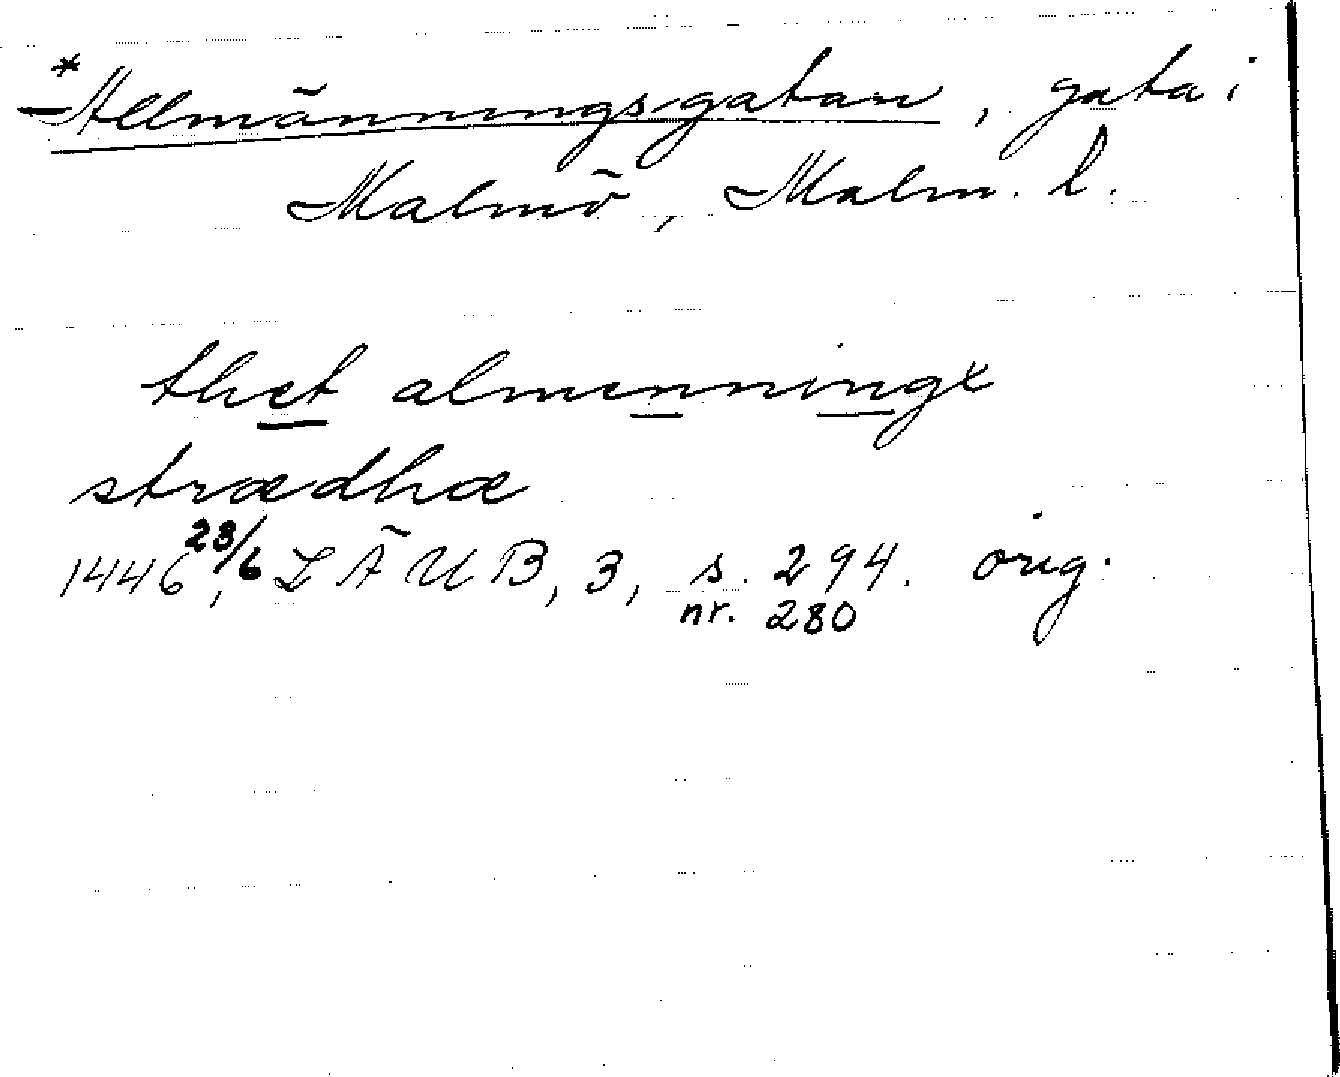 *Allmänningsgatan, gata i
Malmö, Malm. l.
thet almenningx
strædhæ
1446 23/6, LÄUB, 3, s. 294. orig.
nr. 280